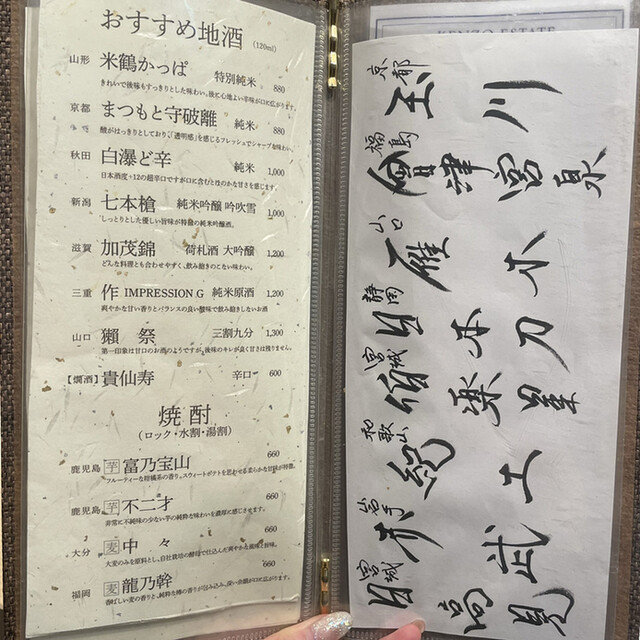 おすすめ地酒 (120ml)
山形 米鶴かっぱ 特別純米 880
きれいで後味もすっきりとした味わい。後に心地よい辛味が口に広がります。
京都 まつもと守破離 純米 880
酸がはっきりとしており、「透明感」を感じるフレッシュでシャープな味わい。
秋田 白瀑ど辛 純米 1,000
日本酒度+12の超辛口ですが口に含むとほのかな甘さを感じます。
新潟 七本槍 純米吟醸 吟吹雪 1,000
しっとりとした優しい旨味が特徴の純米吟醸酒。
滋賀 加茂錦 荷札酒 大吟醸 1,200
どんな料理とも合わせやすく、飲み飽きのこない味わい。
三重 作 IMPRESSION G 純米原酒 1,200
爽やかな甘い香りとバランスの良い酸味で飲み飽きしないお酒
山口 獺祭 三割九分 1,300
第一印象は甘口のお酒のようですが、後味のキレが良く甘さは残りません。
【燗酒】貴仙寿 辛口 600
焼酎
(ロック・水割・湯割)
660
鹿児島 芋 富乃宝山
フルーティーな柑橘系の香り。スウィートポテトを思わせる柔らかな甘味が特徴。
660
鹿児島 芋 不二才
非常に不純味の少ない芋の純粋な味わいを濃厚に感じさせます。
660
大分 麦 中々
660
福岡 麦 龍乃幹
KENZO ESTATE
京都 玉川
福島 會津宮泉
山口 雁木
静岡
宮城
和歌山 紀土
岩手 赤武
宮城 日高見